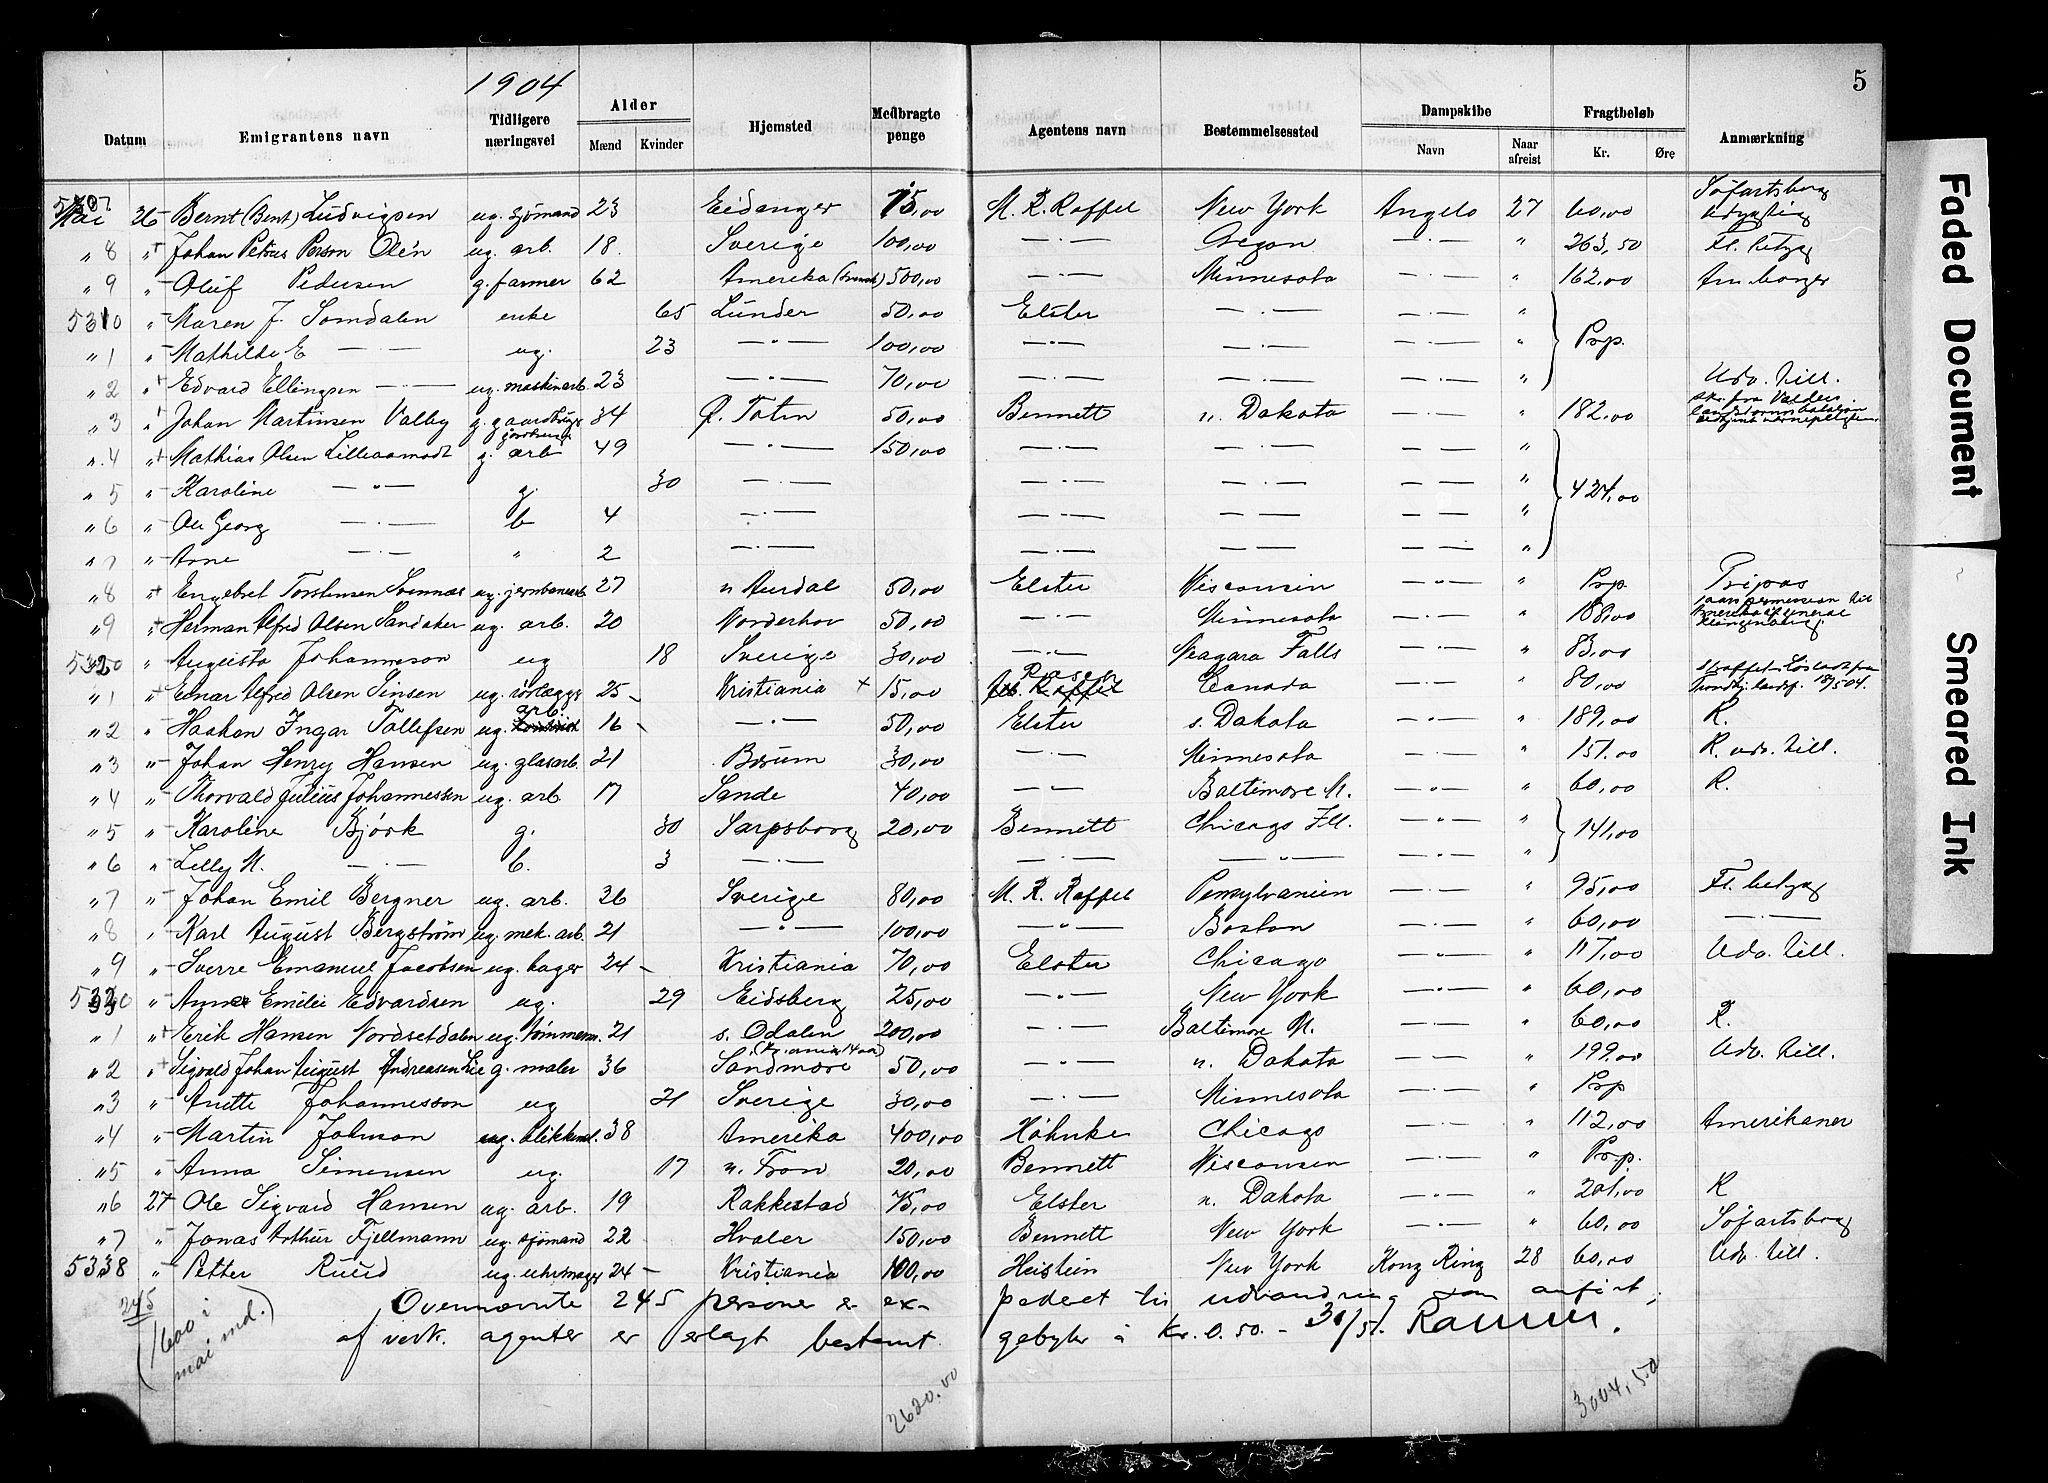 1904
5
Datum Emigrantens navn Tidligere næringsvei Alder Mænd Kvinder Hjemsted Medbragte penge Agentens navn Bestemmelsessted Dampskibe Navn Naar afreist Fragtbeløb Kr. Øre Anmærkning
5307 Mai 26 Bernt (Bent) Ludvigsen ug. sjømand 23 Eidanger 75,00 M. R. Raffel New York Angelo 27 60,00 Søfartsborg
" 8 " Johan Petrus Person Olén ug. arb. 18. Sverige 100,00 — " — Oregon — " — " 263,50 Fl. betyg
" 9 " Oluf Pedersen g. farmer 62 Amerika 500,00 — " — Minnesota — " — " 162,00 Am. borger
5310 " Maren J. Somdalen enke 65 Lunder 50,00 Elster — " — — " — " Prp.
" 1 " Mathilde E — " — ug. 23 — " — 100,00 — " — — " — — " — "
" 2 " Edvard Ellingsen — " — ug. maskinarb. 23 — " — 70,00 — " — — " — "  Udv. till.
" 3 " Johan Martinsen Valby g. gaardbruger 34 Ø. Toten 50,00 Bennett n. Dakota — " — " 182,00 skr. fra Valders
" 4 " Mathias Olsen Lilleaamodt g. arb 49 — " — 150,00 — " — — " — — " — " 424,00
" 5 " Karoline — " — g. 30 — " — — " — — " — — " — "
" 6 " Ole Georg — " — b 4 — " — — " — — " — — " — "
" 7 " Arne — " — " 2 — " — — " — — " — — " — "
" 8 " Engebret Torstensen Svennæs ug. jernbanearb 27 n Aurdal 50,00 Elster Wisconsin — " — " Prp. Pripas
" 9 " Herman Alfred Olsen Sandaker ug. arb. 20 Norderhov 50,00 — " — Minnesota — " — " 188,00
5320 " Augusta Johanneson ug 18 Sverige 30,00 — " — Neagara Falls — " — " 83,00
" 1 " Einar Alfred Olsen Sinsen ug. rørlægger 25 Kristiania + 15,00 Canada — " — " 80,00 Trondhj. landsf. 18/5 04.
" 2 " Haakon Ingar Tollefsen ug. arb. 16 — " — 50,00 Elster s. Dakota — " — " 189,00 R.
" 3 " Johan Henry Hansen ug. glasarb. 21 Bærum 30,00 — " — Minnesota — " — " 151.00 R. udv. till.
" 4 " Thorvald Julius Johannessen ug. arb 17 Sande 40,00 — " — Baltimore M. — " — " 60,00 R.
" 5 " Karoline Bjørk g. 30 Sarpsborg 20,00 Bennett Chicago Ill. — " — " 141,00
" 6 " Lilly M. — " — b. 3 — " — — " — — " — — " — "
" 7 " Johan Emil Bergner ug. arb. 26 Sverige 80,00 M. R. Raffel Pensylvanien — " — " 95,00 Fl. betyg
" 8 " Karl August Bergstrøm ug. mek. arb. 21 — " — 100,00 — " — Boston — " — " 60,00 — " —
" 9 " Sverre Emanuel Jacobsen ug. bager 24 Kristiania 70,00 Elster Chicago — " — " 117,00 Udv. till.
5330 " Agnes Emilie Edvardsen ug. 29 Eidsberg 25,00 — " — New York — " — " 60,00
" 1 " Erik Hansen Nordsetdalen ug. tømmerm. 21 s. Odalen 200,00 Baltimore M. — " — " 60,00 R.
" 2 " Sigvald Johan August Andreasen Lie g. maler 36 Søndmøre 50,00 — " — n. Dakota — " — " 199,00 Udv. till.
" 3 " Anette Johannesson ug 21 Sverige 30,00 — " — Minnesota — " — " Prp
" 4 " Martin Johnson ug. blikkensl. 38 Amerika 400,00 Höhnke Chicago — " — " 112,00 Amerikaner
" 5 " Anna Simensen ug. 17 n. Fron 20,00 Bennett Wisconsin — " — " Prp.
" 6 27 Ole Sigvard Hansen ug. arb. 19 Rakkestad 75,00 Elster n. Dakota — " — " 201,00 R
" 7 " Jonas Arthur Fjellmann ug. sjømand 22 Hvaler 150,00 Bennett New York — " — " 60,00 Søfartsborg
5338 " Petter Ruud ug. uhrmager 24 Kristiania 100,00 Heistein New York Kong Ring 28 60,00 Udv. till.
245
(1600 i mai md.)
Ovennævnte 245 personer er expederet til udvandring som anført;
af vedk. agenter er erlagt bestemt gebyr à Kr. 0.50. - 31/5.
2620.00
3004,50
Faded Document
Smeared Ink